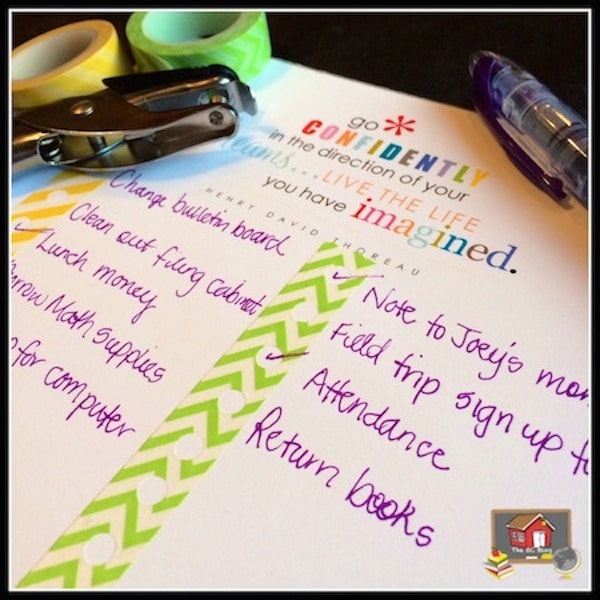 go *
CONFIDENTLY
in the direction of your
dreams...LIVE THE LIFE
you have imagined.
HENRY DAVID THOREAU
Change bulletin board
Clean out filing cabinet
Lunch money
Math supplies
for computer
Note to Joey's mom
Field trip sign up
Attendance
Return books
The OC Blog